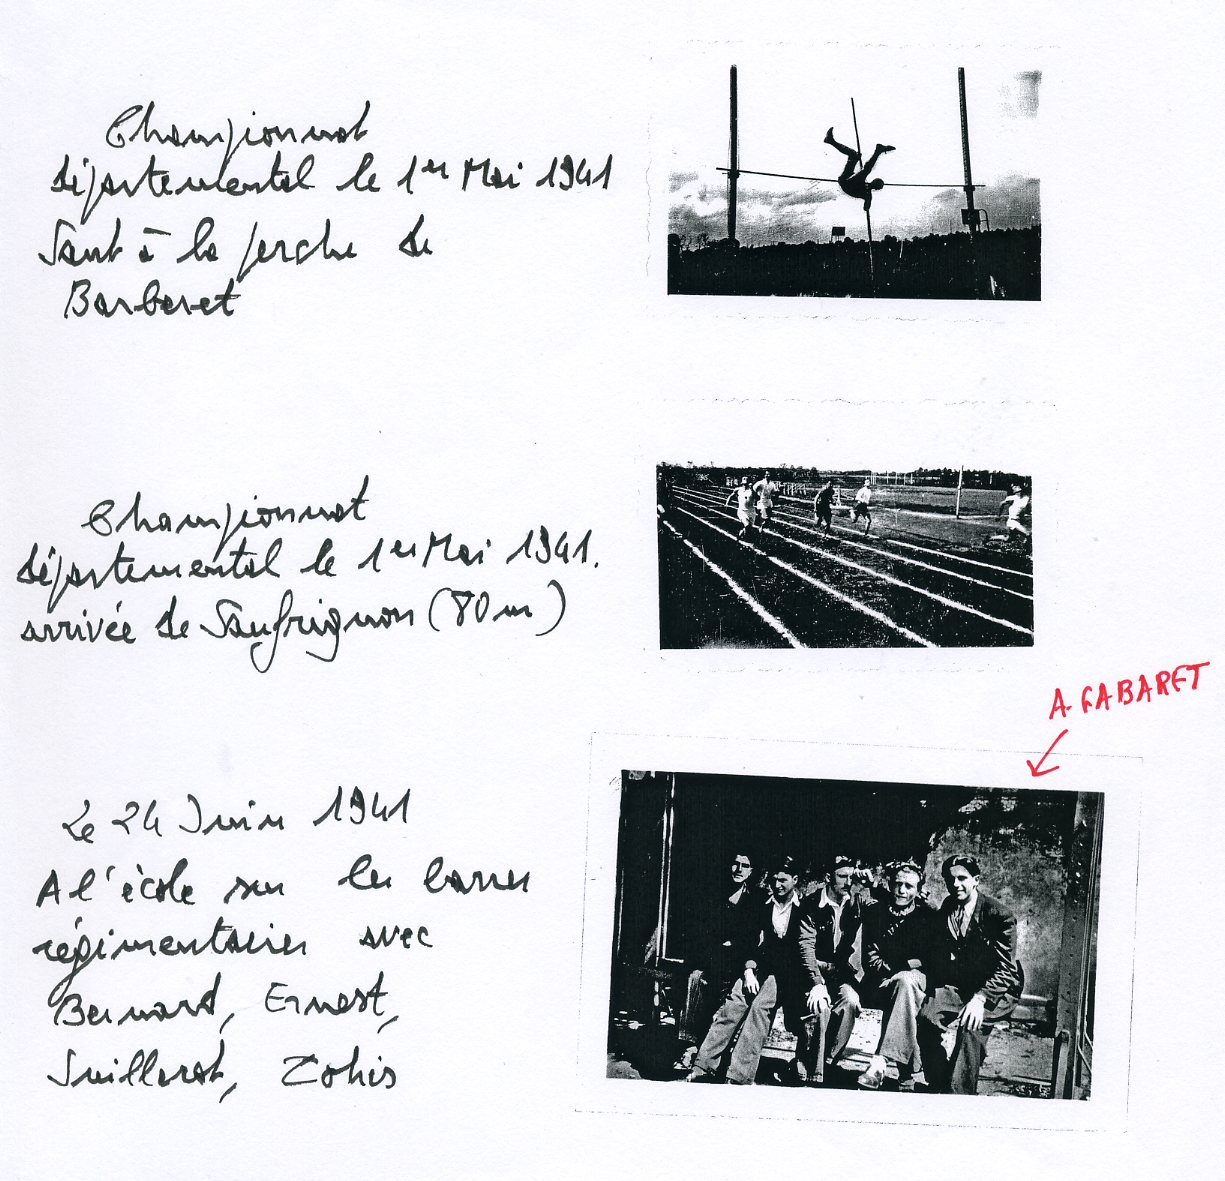 Championnat
départemental le 1er Mai 1941
Saut à la perche de
Barberet
Championnat
départemental le 1er Mai 1941.
arrivée de Saufrignon (80m)
A. CABARET
Le 24 Juin 1941
A l'école sur les barres
régimentaires avec
Bernard, Ernest,